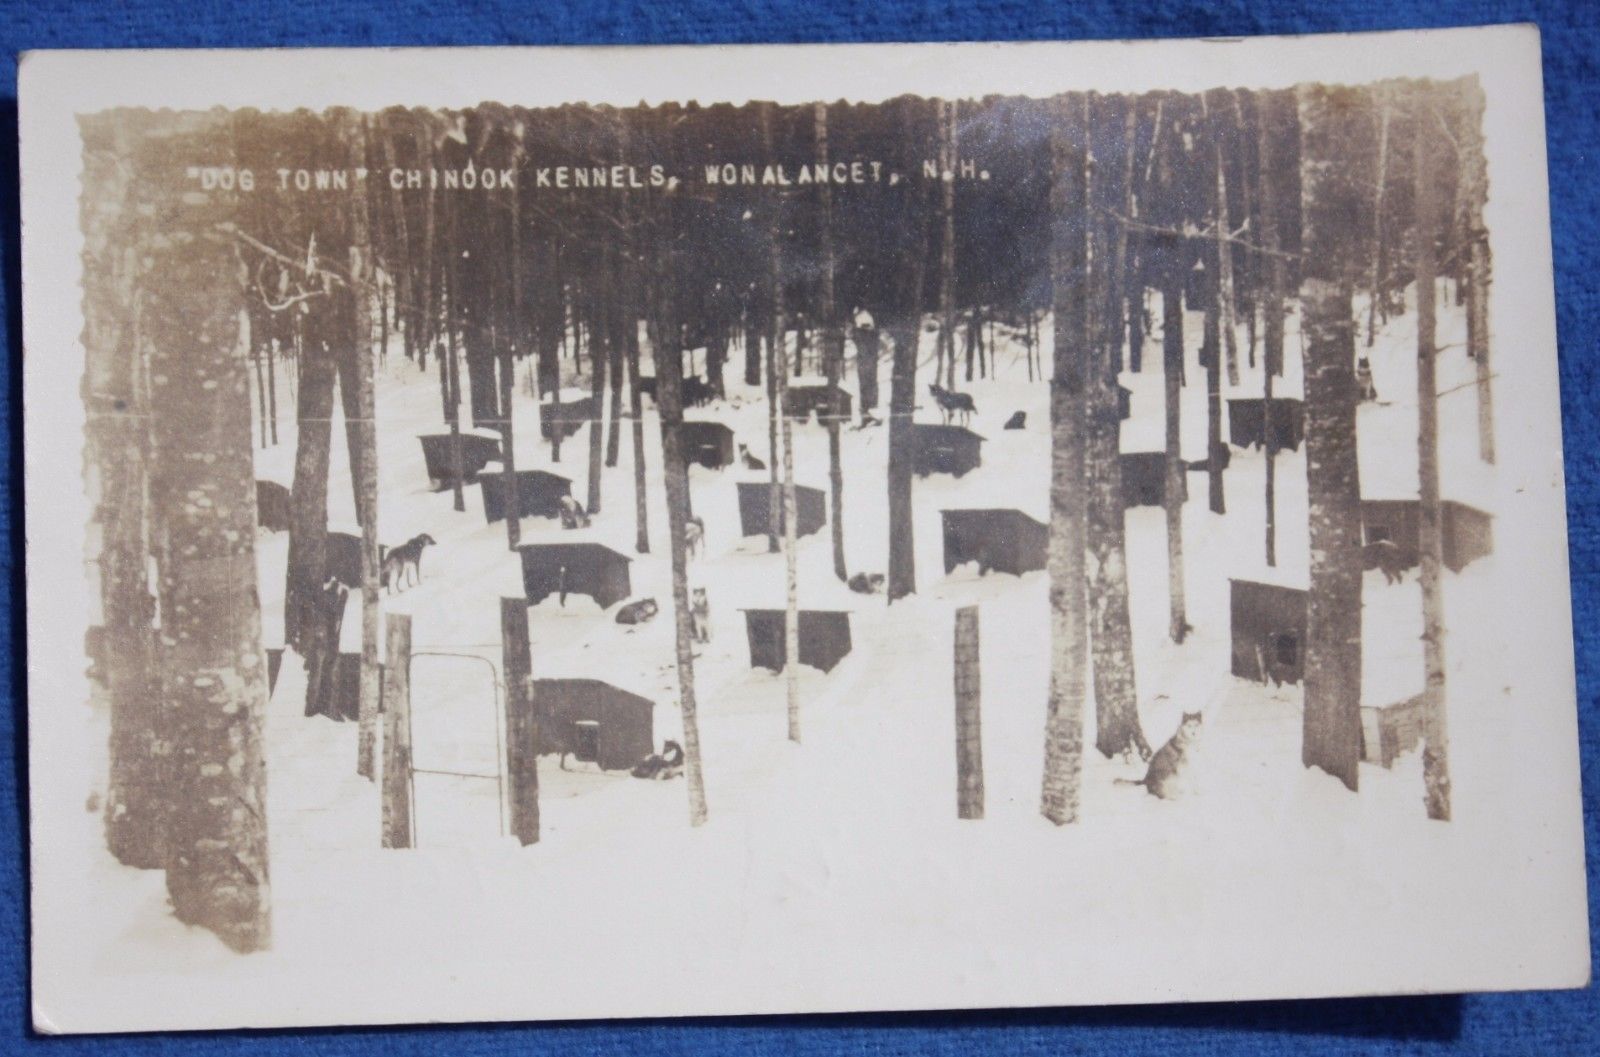 "DOG TOWN" CHINOOK KENNELS, WONALANCET, N.H.